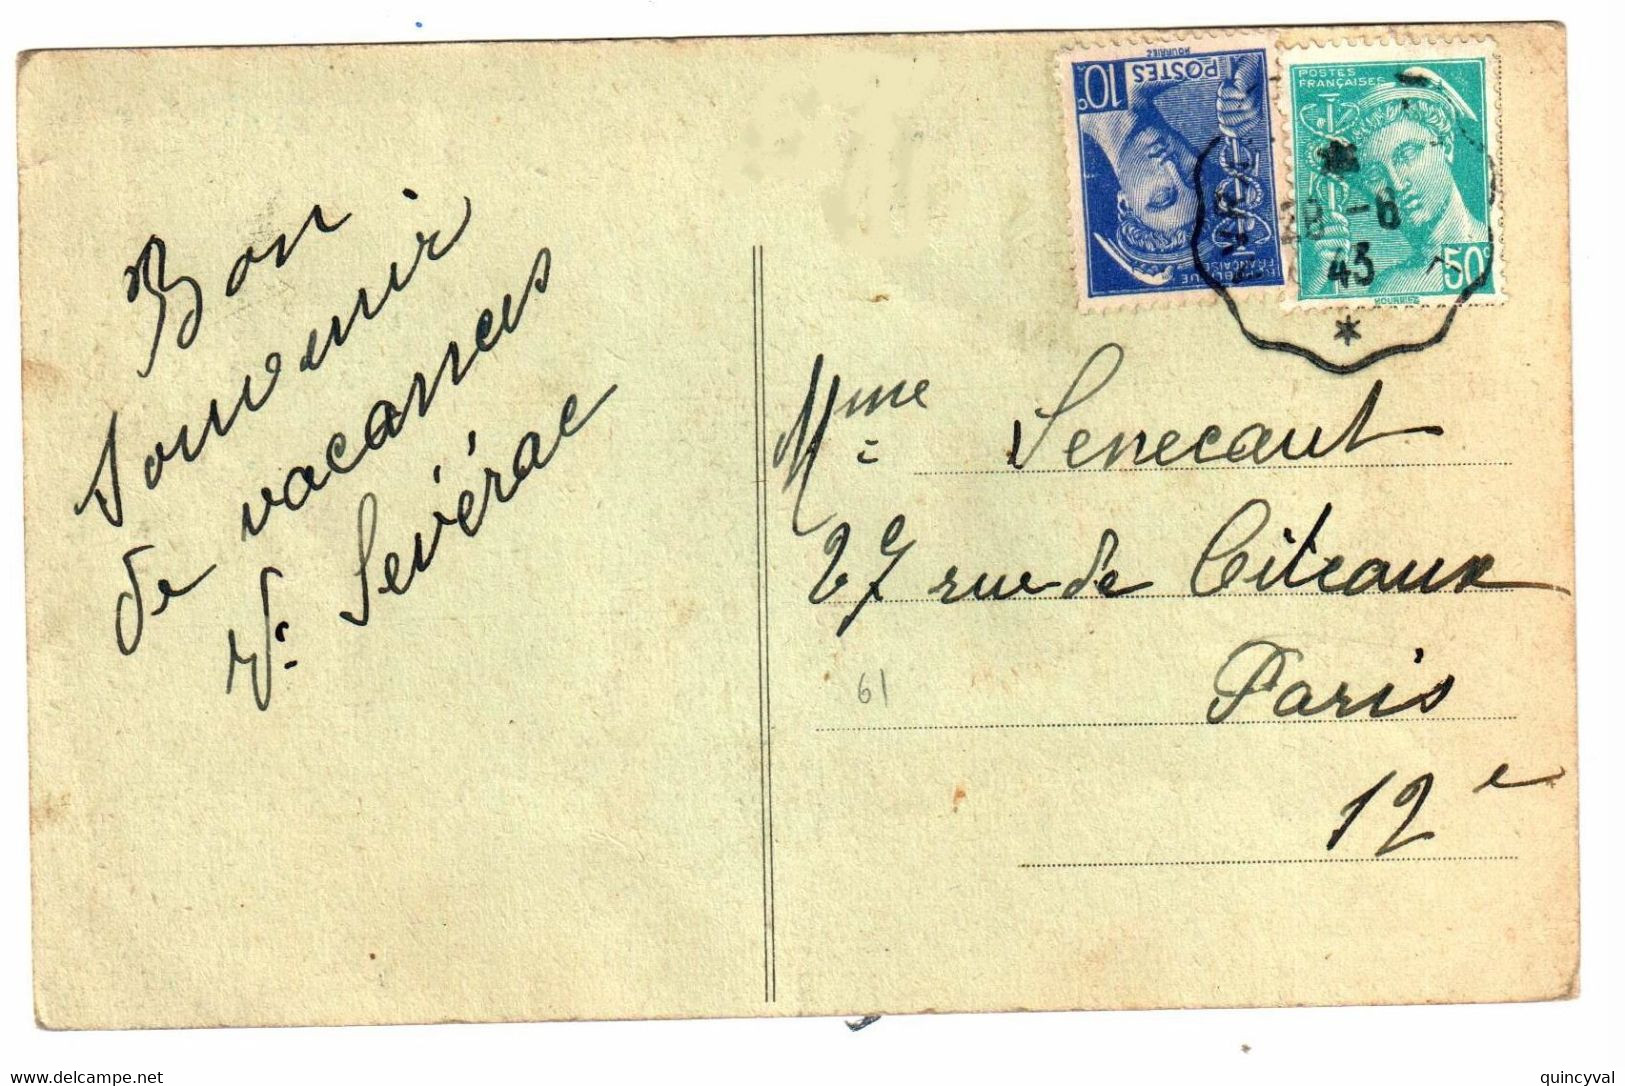 Bon
souvenir
de vacances
Vve Sévérac
10c
POSTES
RÉPUBLIQUE
FRANÇAISE
HOURRIEZ
POSTES
FRANÇAISES
50c
HOURRIEZ
28 -8
43
Mme Senecaut
27 rue de Citeaux
Paris
12e
61
delcampe.net
quincyval